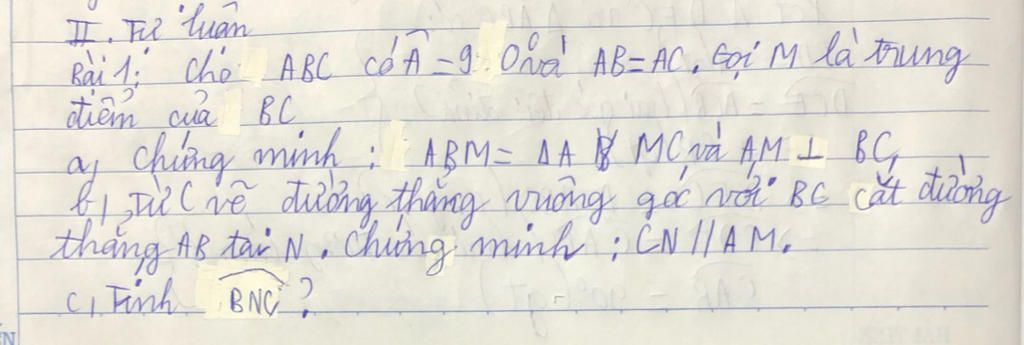 II. Tự luận
Bài 1: Cho ABC có Â = 90° và AB=AC. Gọi M là trung
điểm của BC
a, Chứng minh: ABM = ΔA MC và AM ⊥ BC,
b, Từ C vẽ đường thẳng vuông góc với BC cắt đường
thẳng AB tại N. Chứng minh: CN // AM.
c, Tính BNC ?